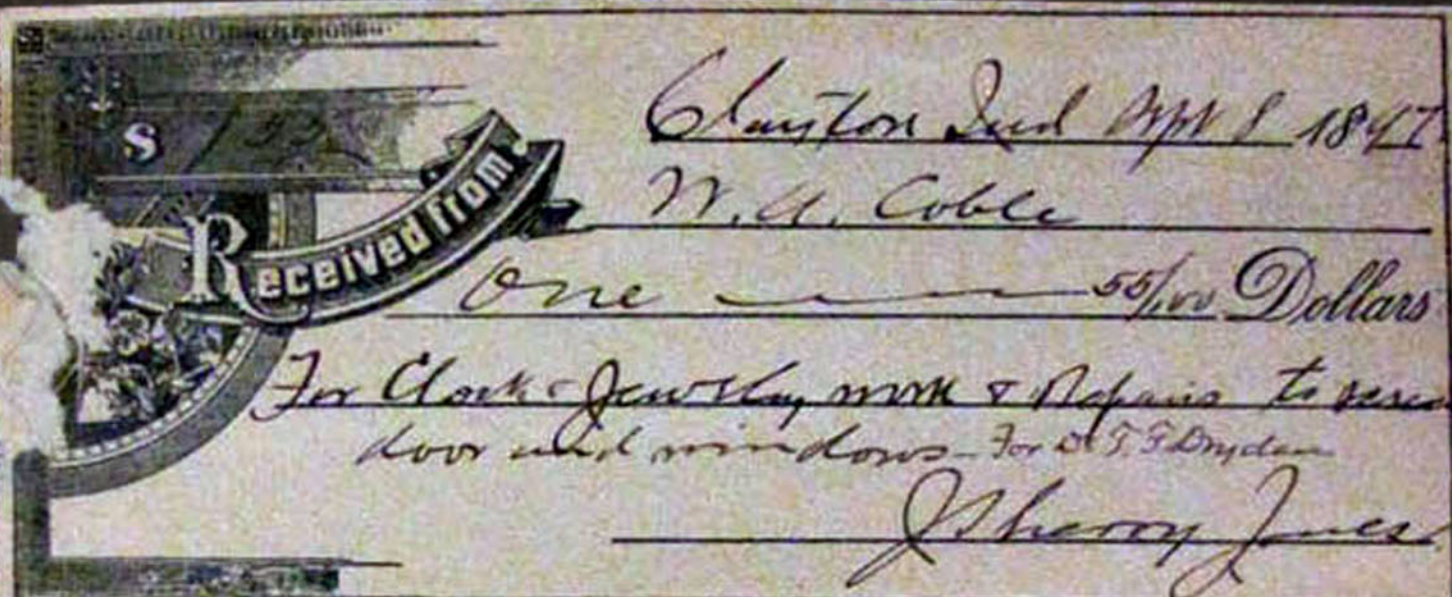 Clayton Ind Apr 8 1897
$ 155
Received from W. A. Coble
One 55/100 Dollars
For Clock & Jewelry work & Repairs to screen
door and windows - For D. T. F. Dryden
J Sherry Jones